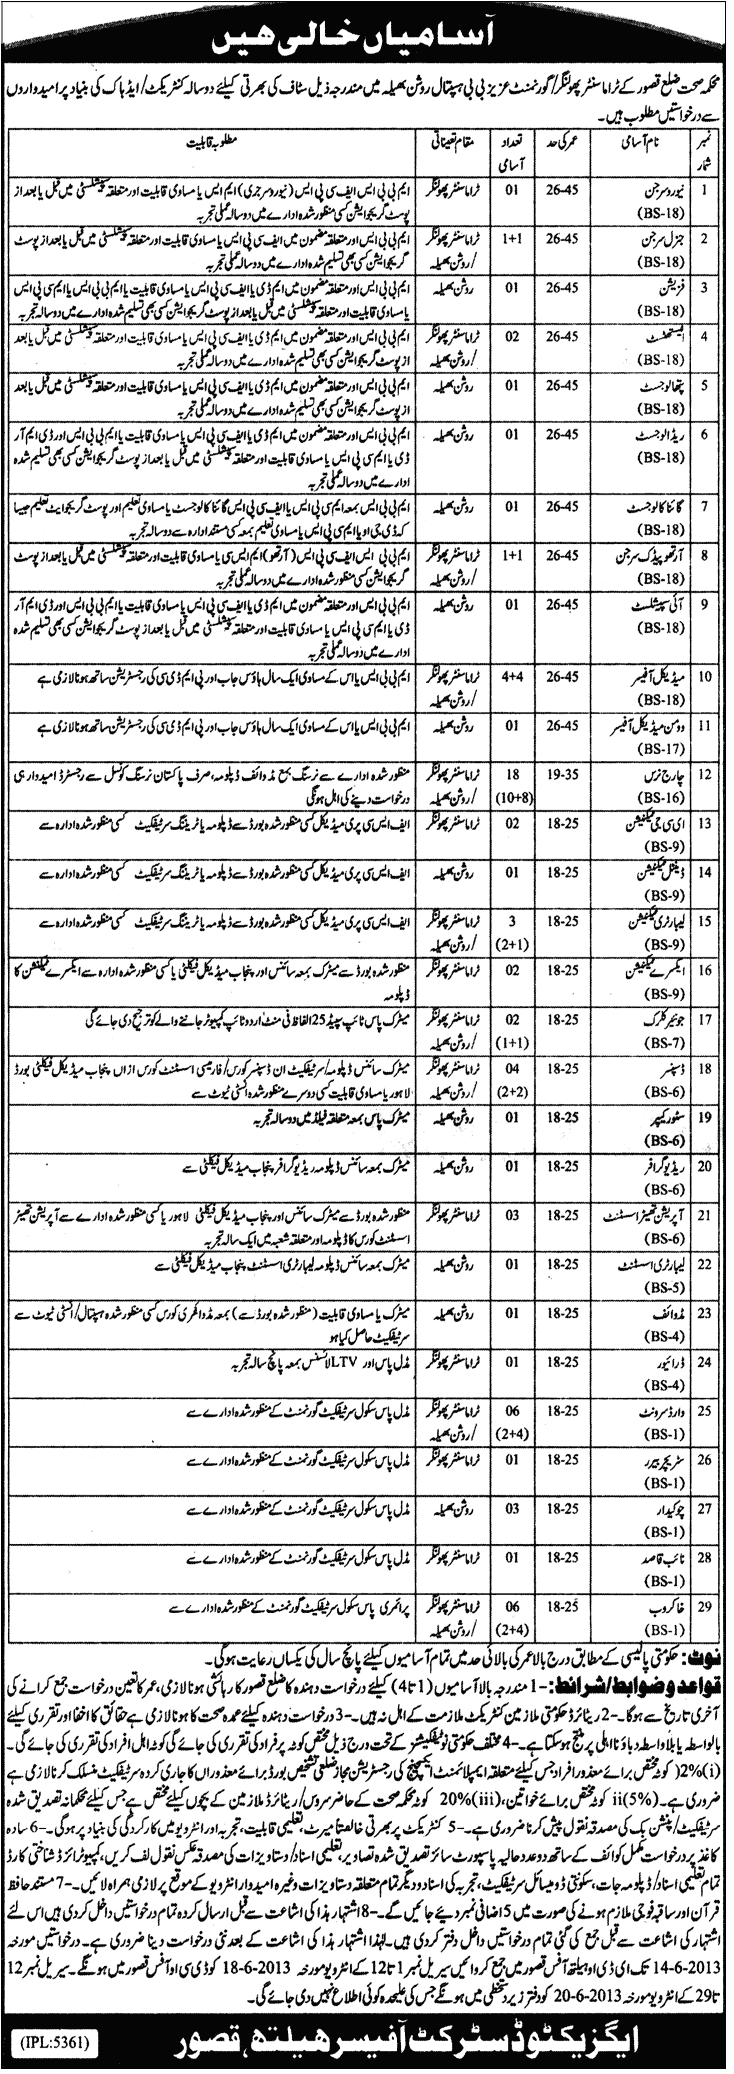 آسامیاں خالی ھیں
محکمہ صحت ضلع قصور کے ٹراما سنٹر پھولنگر/گورنمنٹ عزیز بی بی ہسپتال روشن بھیلہ میں مندرجہ ذیل سٹاف کی بھرتی کیلئے دوسالہ کنٹریکٹ/ایڈہاک کی بنیاد پر امیدواروں
سے درخواستیں مطلوب ہیں۔
نمبر شمار نام آسامی عمر کی حد تعداد آسامی مقام تعیناتی مطلوبہ قابلیت
1 نیوروسرجن (BS-18) 26-45 01 ٹراما سنٹر پھولنگر ایم بی بی ایس ایف سی پی ایس (نیوروسرجری) ایم ایس یا مساوی قابلیت اور متعلقہ سپیشلسٹی میں قبل یا بعد از
پوسٹ گریجوایشن کسی منظور شدہ ادارے میں دو سالہ عملی تجربہ
2 جنرل سرجن (BS-18) 26-45 1+1 ٹراما سنٹر پھولنگر/روشن بھیلہ ایم بی بی ایس اور متعلقہ مضمون میں ایف سی پی ایس یا مساوی قابلیت اور متعلقہ سپیشلسٹی میں قبل یا بعد از پوسٹ
گریجوایشن کسی بھی تسلیم شدہ ادارے میں دو سالہ عملی تجربہ
3 فزیشن (BS-18) 26-45 01 روشن بھیلہ ایم بی بی ایس اور متعلقہ مضمون میں ایم ڈی یا ایف سی پی ایس یا مساوی قابلیت یا ایم بی بی ایس یا ایم سی پی ایس
یا مساوی قابلیت اور متعلقہ سپیشلسٹی میں قبل یا بعد از پوسٹ گریجوایشن کسی بھی تسلیم شدہ ادارے میں دو سالہ عملی تجربہ
4 (BS-18) 26-45 02 ٹراما سنٹر پھولنگر/روشن بھیلہ ایم بی بی ایس اور متعلقہ مضمون میں ایم ڈی یا ایف سی پی ایس یا مساوی قابلیت اور متعلقہ سپیشلسٹی میں قبل یا بعد
از پوسٹ گریجوایشن کسی بھی تسلیم شدہ ادارے میں دو سالہ عملی تجربہ
5 پتھالوجسٹ (BS-18) 26-45 01 روشن بھیلہ ایم بی بی ایس اور متعلقہ مضمون میں ایم ڈی یا ایف سی پی ایس یا مساوی قابلیت اور متعلقہ سپیشلسٹی میں قبل یا بعد
از پوسٹ گریجوایشن کسی بھی تسلیم شدہ ادارے میں دو سالہ عملی تجربہ
6 ریڈیالوجسٹ (BS-18) 26-45 01 روشن بھیلہ ایم بی بی ایس اور متعلقہ مضمون میں ایم ڈی یا ایف سی پی ایس یا مساوی قابلیت یا ایم بی بی ایس اور ڈی ایم آر
ڈی یا ایم سی پی ایس یا مساوی قابلیت اور متعلقہ سپیشلسٹی میں قبل یا بعد از پوسٹ گریجوایشن کسی بھی تسلیم شدہ
ادارے میں دو سالہ عملی تجربہ
7 گائناکالوجسٹ (BS-18) 26-45 01 روشن بھیلہ ایم بی بی ایس بمعہ ایم سی پی ایس یا ایف سی پی ایس گائناکالوجسٹ یا مساوی تعلیم اور پوسٹ گریجوایٹ تعلیم جیسا
کہ ڈی جی او یا ایم سی پی ایس یا مساوی تعلیم بمعہ کسی مستند ادارہ سے دو سالہ تجربہ
8 آرتھوپیڈک سرجن (BS-18) 26-45 1+1 ٹراما سنٹر پھولنگر/روشن بھیلہ ایم بی بی ایس ایف سی پی ایس (آرتھو) ایم ایس یا مساوی قابلیت اور متعلقہ سپیشلسٹی میں قبل یا بعد از پوسٹ
گریجوایشن کسی منظور شدہ ادارے میں دو سالہ عملی تجربہ
9 آئی سپیشلسٹ (BS-18) 26-45 01 روشن بھیلہ ایم بی بی ایس اور متعلقہ مضمون میں ایم ڈی یا ایف سی پی ایس یا مساوی قابلیت یا ایم بی بی ایس اور ڈی ایم آر
ڈی یا ایم سی پی ایس یا مساوی قابلیت اور متعلقہ سپیشلسٹی میں قبل یا بعد از پوسٹ گریجوایشن کسی بھی تسلیم شدہ
ادارے میں دو سالہ عملی تجربہ
10 میڈیکل آفیسر (BS-18) 26-45 4+4 ٹراما سنٹر پھولنگر/روشن بھیلہ ایم بی بی ایس یا اس کے مساوی ایک سال ہاؤس جاب اور پی ایم ڈی سی کی رجسٹریشن ساتھ ہونا لازمی ہے
11 وومن میڈیکل آفیسر (BS-17) 26-45 01 روشن بھیلہ ایم بی بی ایس یا اس کے مساوی ایک سال ہاؤس جاب اور پی ایم ڈی سی کی رجسٹریشن ساتھ ہونا لازمی ہے
12 چارج نرس (BS-16) 19-35 18 (10+8) ٹراما سنٹر پھولنگر/روشن بھیلہ منظور شدہ ادارے سے نرسنگ بمع مڈوائف ڈپلومہ، صرف پاکستان نرسنگ کونسل سے رجسٹرڈ امیدوار ہی
درخواست دینے کی اہل ہونگی
13 ای سی جی ٹیکنیشن (BS-9) 18-25 02 ٹراما سنٹر پھولنگر ایف ایس سی پری میڈیکل کسی منظور شدہ بورڈ سے ڈپلومہ یا ٹریننگ سرٹیفکیٹ کسی منظور شدہ ادارہ سے
14 ڈینٹل ٹیکنیشن (BS-9) 18-25 01 روشن بھیلہ ایف ایس سی پری میڈیکل کسی منظور شدہ بورڈ سے ڈپلومہ یا ٹریننگ سرٹیفکیٹ کسی منظور شدہ ادارہ سے
15 لیبارٹری ٹیکنیشن (BS-9) 18-25 3 (2+1) ٹراما سنٹر پھولنگر/روشن بھیلہ ایف ایس سی پری میڈیکل کسی منظور شدہ بورڈ سے ڈپلومہ یا ٹریننگ سرٹیفکیٹ کسی منظور شدہ ادارہ سے
16 ایکسرے ٹیکنیشن (BS-9) 18-25 02 ٹراما سنٹر پھولنگر منظور شدہ بورڈ سے میٹرک بمعہ سائنس اور پنجاب میڈیکل فیکلٹی یا کسی منظور شدہ ادارہ سے ایکسرے ٹیکنیشن کا
ڈپلومہ
17 جونیئر کلرک (BS-7) 18-25 02 (1+1) ٹراما سنٹر پھولنگر/روشن بھیلہ میٹرک پاس ٹائپ سپیڈ 25 الفاظ فی منٹ اردو ٹائپ کمپیوٹر جاننے والے کو ترجیح دی جائے گی
18 ڈسپنسر (BS-6) 18-25 04 (2+2) ٹراما سنٹر پھولنگر/روشن بھیلہ میٹرک سائنس ڈپلومہ/سرٹیفکیٹ ان ڈسپنسر کورس/فارمیسی اسسٹنٹ کورس ازاں پنجاب میڈیکل فیکلٹی بورڈ
لاہور یا مساوی قابلیت کسی دوسرے منظور شدہ انسٹی ٹیوٹ سے
19 سٹور کیپر (BS-6) 18-25 01 روشن بھیلہ میٹرک پاس بمعہ متعلقہ فیلڈ میں دو سالہ تجربہ
20 ریڈیوگرافر (BS-6) 18-25 01 روشن بھیلہ میٹرک بمعہ سائنس ڈپلومہ ریڈیوگرافر پنجاب میڈیکل فیکلٹی سے
21 آپریشن تھیٹر اسسٹنٹ (BS-6) 18-25 03 ٹراما سنٹر پھولنگر منظور شدہ بورڈ سے میٹرک سائنس اور پنجاب میڈیکل فیکلٹی لاہور یا کسی منظور شدہ ادارے سے آپریشن تھیٹر
اسسٹنٹ کورس کا ڈپلومہ اور متعلقہ شعبہ میں ایک سالہ تجربہ
22 لیبارٹری اسسٹنٹ (BS-5) 18-25 01 روشن بھیلہ میٹرک بمعہ سائنس ڈپلومہ لیبارٹری اسسٹنٹ پنجاب میڈیکل فیکلٹی سے
23 مڈوائف (BS-4) 18-25 01 روشن بھیلہ میٹرک یا مساوی قابلیت (منظور شدہ بورڈ سے) بمعہ مڈوائفری کورس کسی منظور شدہ ہسپتال/انسٹی ٹیوٹ سے
سرٹیفکیٹ حاصل کیا ہو
24 ڈرائیور (BS-4) 18-25 01 ٹراما سنٹر پھولنگر مڈل پاس اور LTV لائسنس بمعہ پانچ سالہ تجربہ
25 وارڈ سرونٹ (BS-1) 18-25 06 (2+4) ٹراما سنٹر پھولنگر/روشن بھیلہ مڈل پاس سکول سرٹیفکیٹ گورنمنٹ کے منظور شدہ ادارے سے
26 سٹریچر بیرر (BS-1) 18-25 01 ٹراما سنٹر پھولنگر مڈل پاس سکول سرٹیفکیٹ گورنمنٹ کے منظور شدہ ادارے سے
27 چوکیدار (BS-1) 18-25 03 روشن بھیلہ مڈل پاس سکول سرٹیفکیٹ گورنمنٹ کے منظور شدہ ادارے سے
28 نائب قاصد (BS-1) 18-25 01 ٹراما سنٹر پھولنگر مڈل پاس سکول سرٹیفکیٹ گورنمنٹ کے منظور شدہ ادارے سے
29 خاکروب (BS-1) 18-25 06 (2+4) ٹراما سنٹر پھولنگر/روشن بھیلہ پرائمری پاس سکول سرٹیفکیٹ گورنمنٹ کے منظور شدہ ادارے سے
نوٹ: حکومتی پالیسی کے مطابق درج بالا عمر کی بالائی حد میں تمام آسامیوں کیلئے پانچ سال کی یکساں رعایت ہوگی۔
قواعد و ضوابط/شرائط:- 1- مندرجہ بالا آسامیوں (1 تا 4) کیلئے درخواست دہندہ کا ضلع قصور کا رہائشی ہونا لازمی، عمر کا تعین درخواست جمع کرانے کی
آخری تاریخ سے ہوگا۔ 2- ریٹائرڈ حکومتی ملازمین کنٹریکٹ ملازمت کے اہل نہ ہیں۔ 3- درخواست دہندہ کیلئے عمدہ صحت کا ہونا لازمی ہے حقائق کا اخفا اور تقرری کیلئے
بالواسطہ یا بلاواسطہ دباؤ نااہلی پر منتج ہو سکتا ہے۔ 4- مختلف حکومتی نوٹیفکیشنز کے تحت درج ذیل مختص کوٹہ پر افراد کی تقرری کی جائے گی کوٹہ اہل افراد کی تقرری کی جائے گی۔
(i) 2% کوٹہ مختص برائے معذور افراد جس کیلئے متعلقہ ایمپلائمنٹ ایکسچینج کی رجسٹریشن مجاز ضلعی تشخیص بورڈ برائے معذوراں کا جاری کردہ سرٹیفکیٹ منسلک کرنا لازمی ہے
ضروری ہے۔ (ii) 5% کوٹہ مختص برائے خواتین، (iii) 20% کوٹہ محکمہ صحت کے حاضر سروس/ریٹائرڈ ملازمین کے بچوں کیلئے مختص ہے جس کیلئے محکمانہ تصدیق شدہ
سرٹیفکیٹ/پنشن بک کی مصدقہ نقول پیش کرنا ضروری ہے۔ 5- کنٹریکٹ پر بھرتی خالصتاً میرٹ، تعلیمی قابلیت، تجربہ اور انٹرویو میں کارکردگی کی بنیاد پر ہوگی۔ 6- سادہ
کاغذ پر درخواست مکمل کوائف کے ساتھ دو عدد حالیہ پاسپورٹ سائز تصدیق شدہ تصاویر، تعلیمی اسناد/دستاویزات کی مصدقہ عکس نقول لف کریں، کمپیوٹرائزڈ شناختی کارڈ
تمام تعلیمی اسناد/ڈپلومہ جات، سکونتی ڈومیسائل سرٹیفکیٹ، تجربہ کی اسناد و دیگر تمام متعلقہ دستاویزات وغیرہ امیدوار انٹرویو کے موقع پر لازمی ہمراہ لائیں۔ 7- مستند حافظ
قرآن اور سابقہ فوجی ملازم ہونے کی صورت میں 5 اضافی نمبر دیے جائیں گے۔ 8- اشتہار ہذا کی اشاعت سے قبل ارسال کردہ تمام درخواستیں داخل کردی ہیں اس لئے
اشتہار کی اشاعت سے قبل جمع کی گئی تمام درخواستیں داخل دفتر کردی ہیں۔ لہٰذا اشتہار ہذا کی اشاعت کے بعد نئی درخواست دینا ضروری ہے۔ درخواستیں مورخہ
14-6-2013 تک ای ڈی او ہیلتھ آفس قصور میں جمع کروائیں سیریل نمبر 1 تا 12 کے انٹرویو مورخہ 18-6-2013 کو ڈی سی او آفس قصور میں ہونگے۔ سیریل نمبر 12
تا 29 کے انٹرویو مورخہ 20-6-2013 کو دفتر زیر دستخطی میں ہونگے جس کی علیحدہ کوئی اطلاع نہیں دی جائے گی۔
ایگزیکٹو ڈسٹرکٹ آفیسر ہیلتھ، قصور
(IPL:5361)